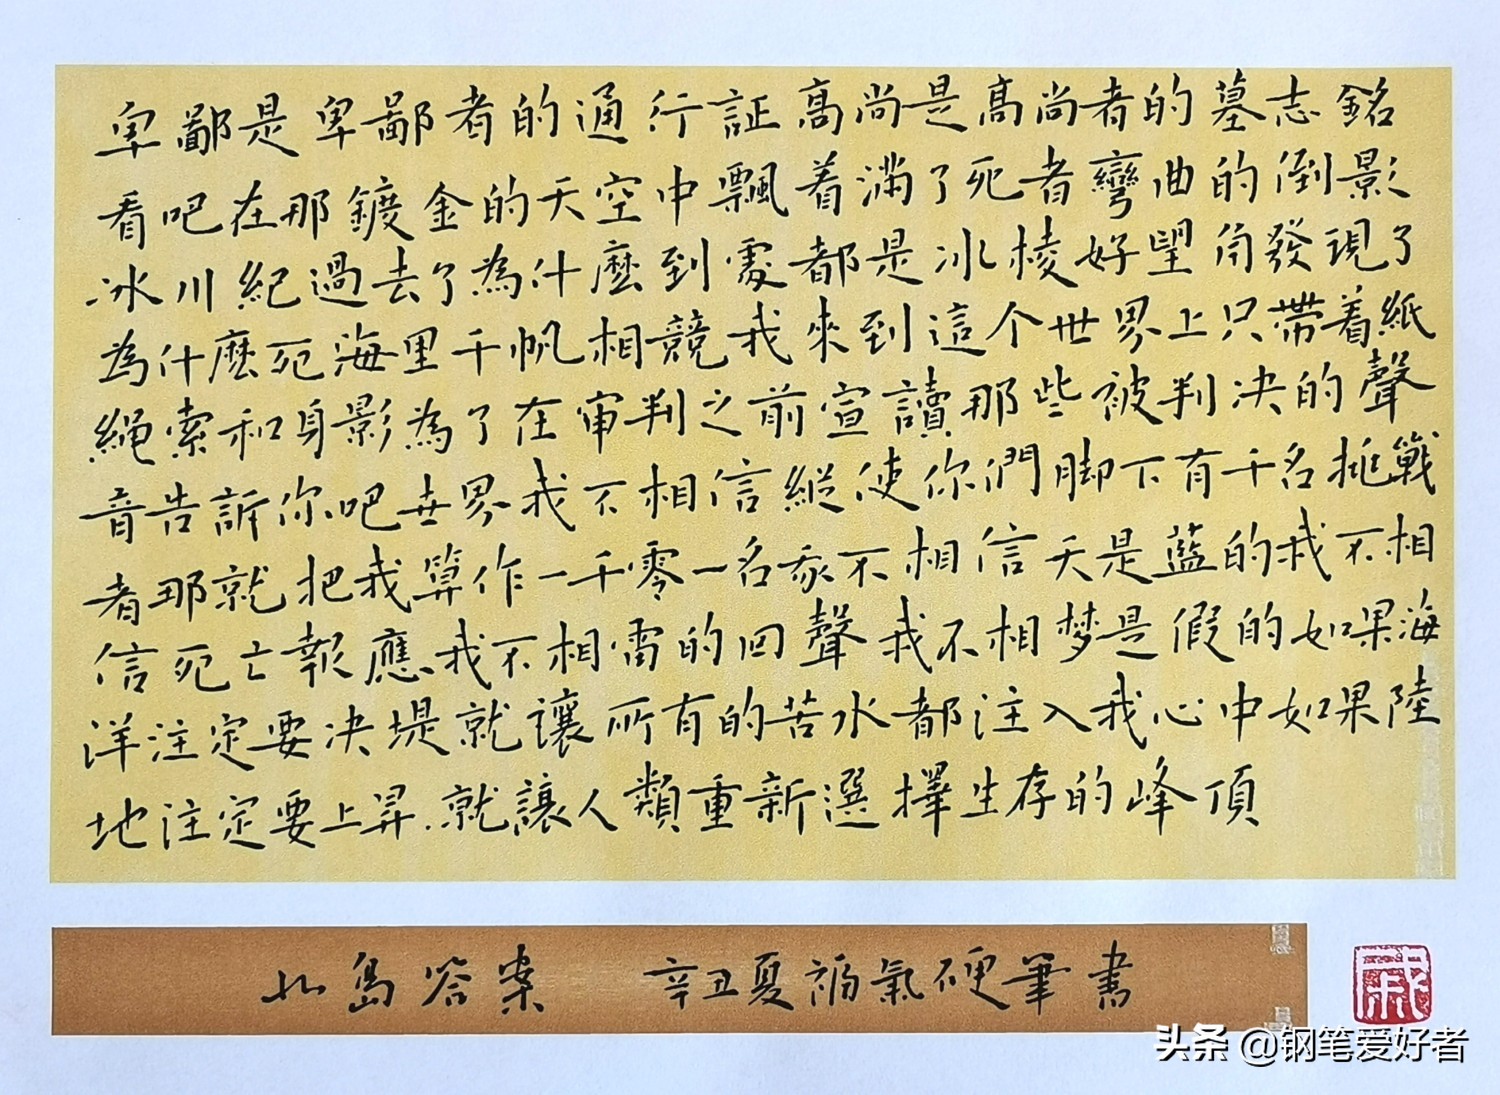 卑鄙是卑鄙者的通行証高尚是高尚者的墓志銘
看吧在那鍍金的天空中飄着滿了死者彎曲的倒影
冰川紀過去了為什麼到處都是冰棱好望角發現了
為什麼死海里千帆相競我來到這个世界上只帶着紙
繩索和身影為了在审判之前宣讀那些被判决的聲
音告訴你吧世界我不相信縱使你們脚下有千名挑戰
者那就把我算作一千零一名我不相信天是藍的我不相
信死亡報應我不相雷的回聲我不相梦是假的如果海
洋注定要决堤就讓所有的苦水都注入我心中如果陸
地注定要上昇就讓人類重新選擇生存的峰頂
北島答案 辛丑夏 氣硬筆書
头条 @钢笔爱好者